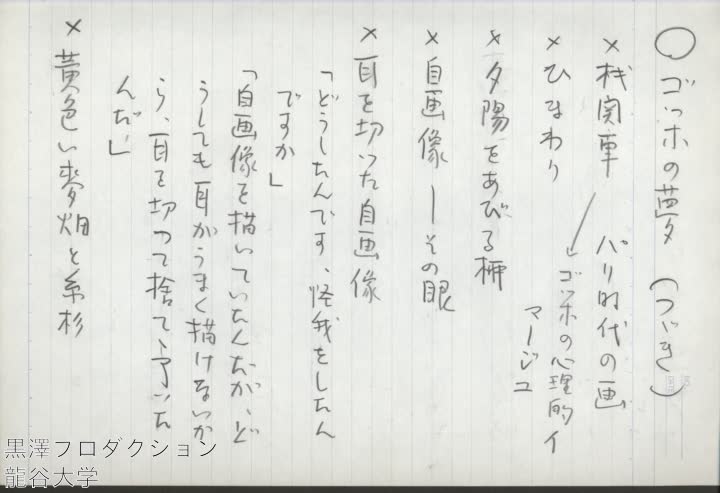 ○ ゴッホの夢 (つづき)
× 機関車 パリ時代の画
× ひまわり
ゴッホの心理的イ
マージユ
× 夕陽をあびる柳
× 自画像 ― その眼
× 耳を切った自画像
「どうしたんです、怪我をしたん
ですか」
「自画像を描いていたんだが、ど
うしても耳がうまく描けないか
ら、耳を切って捨て
んだ」
× 黄色い麥畑と糸杉
黒澤プロダクション
龍谷大学